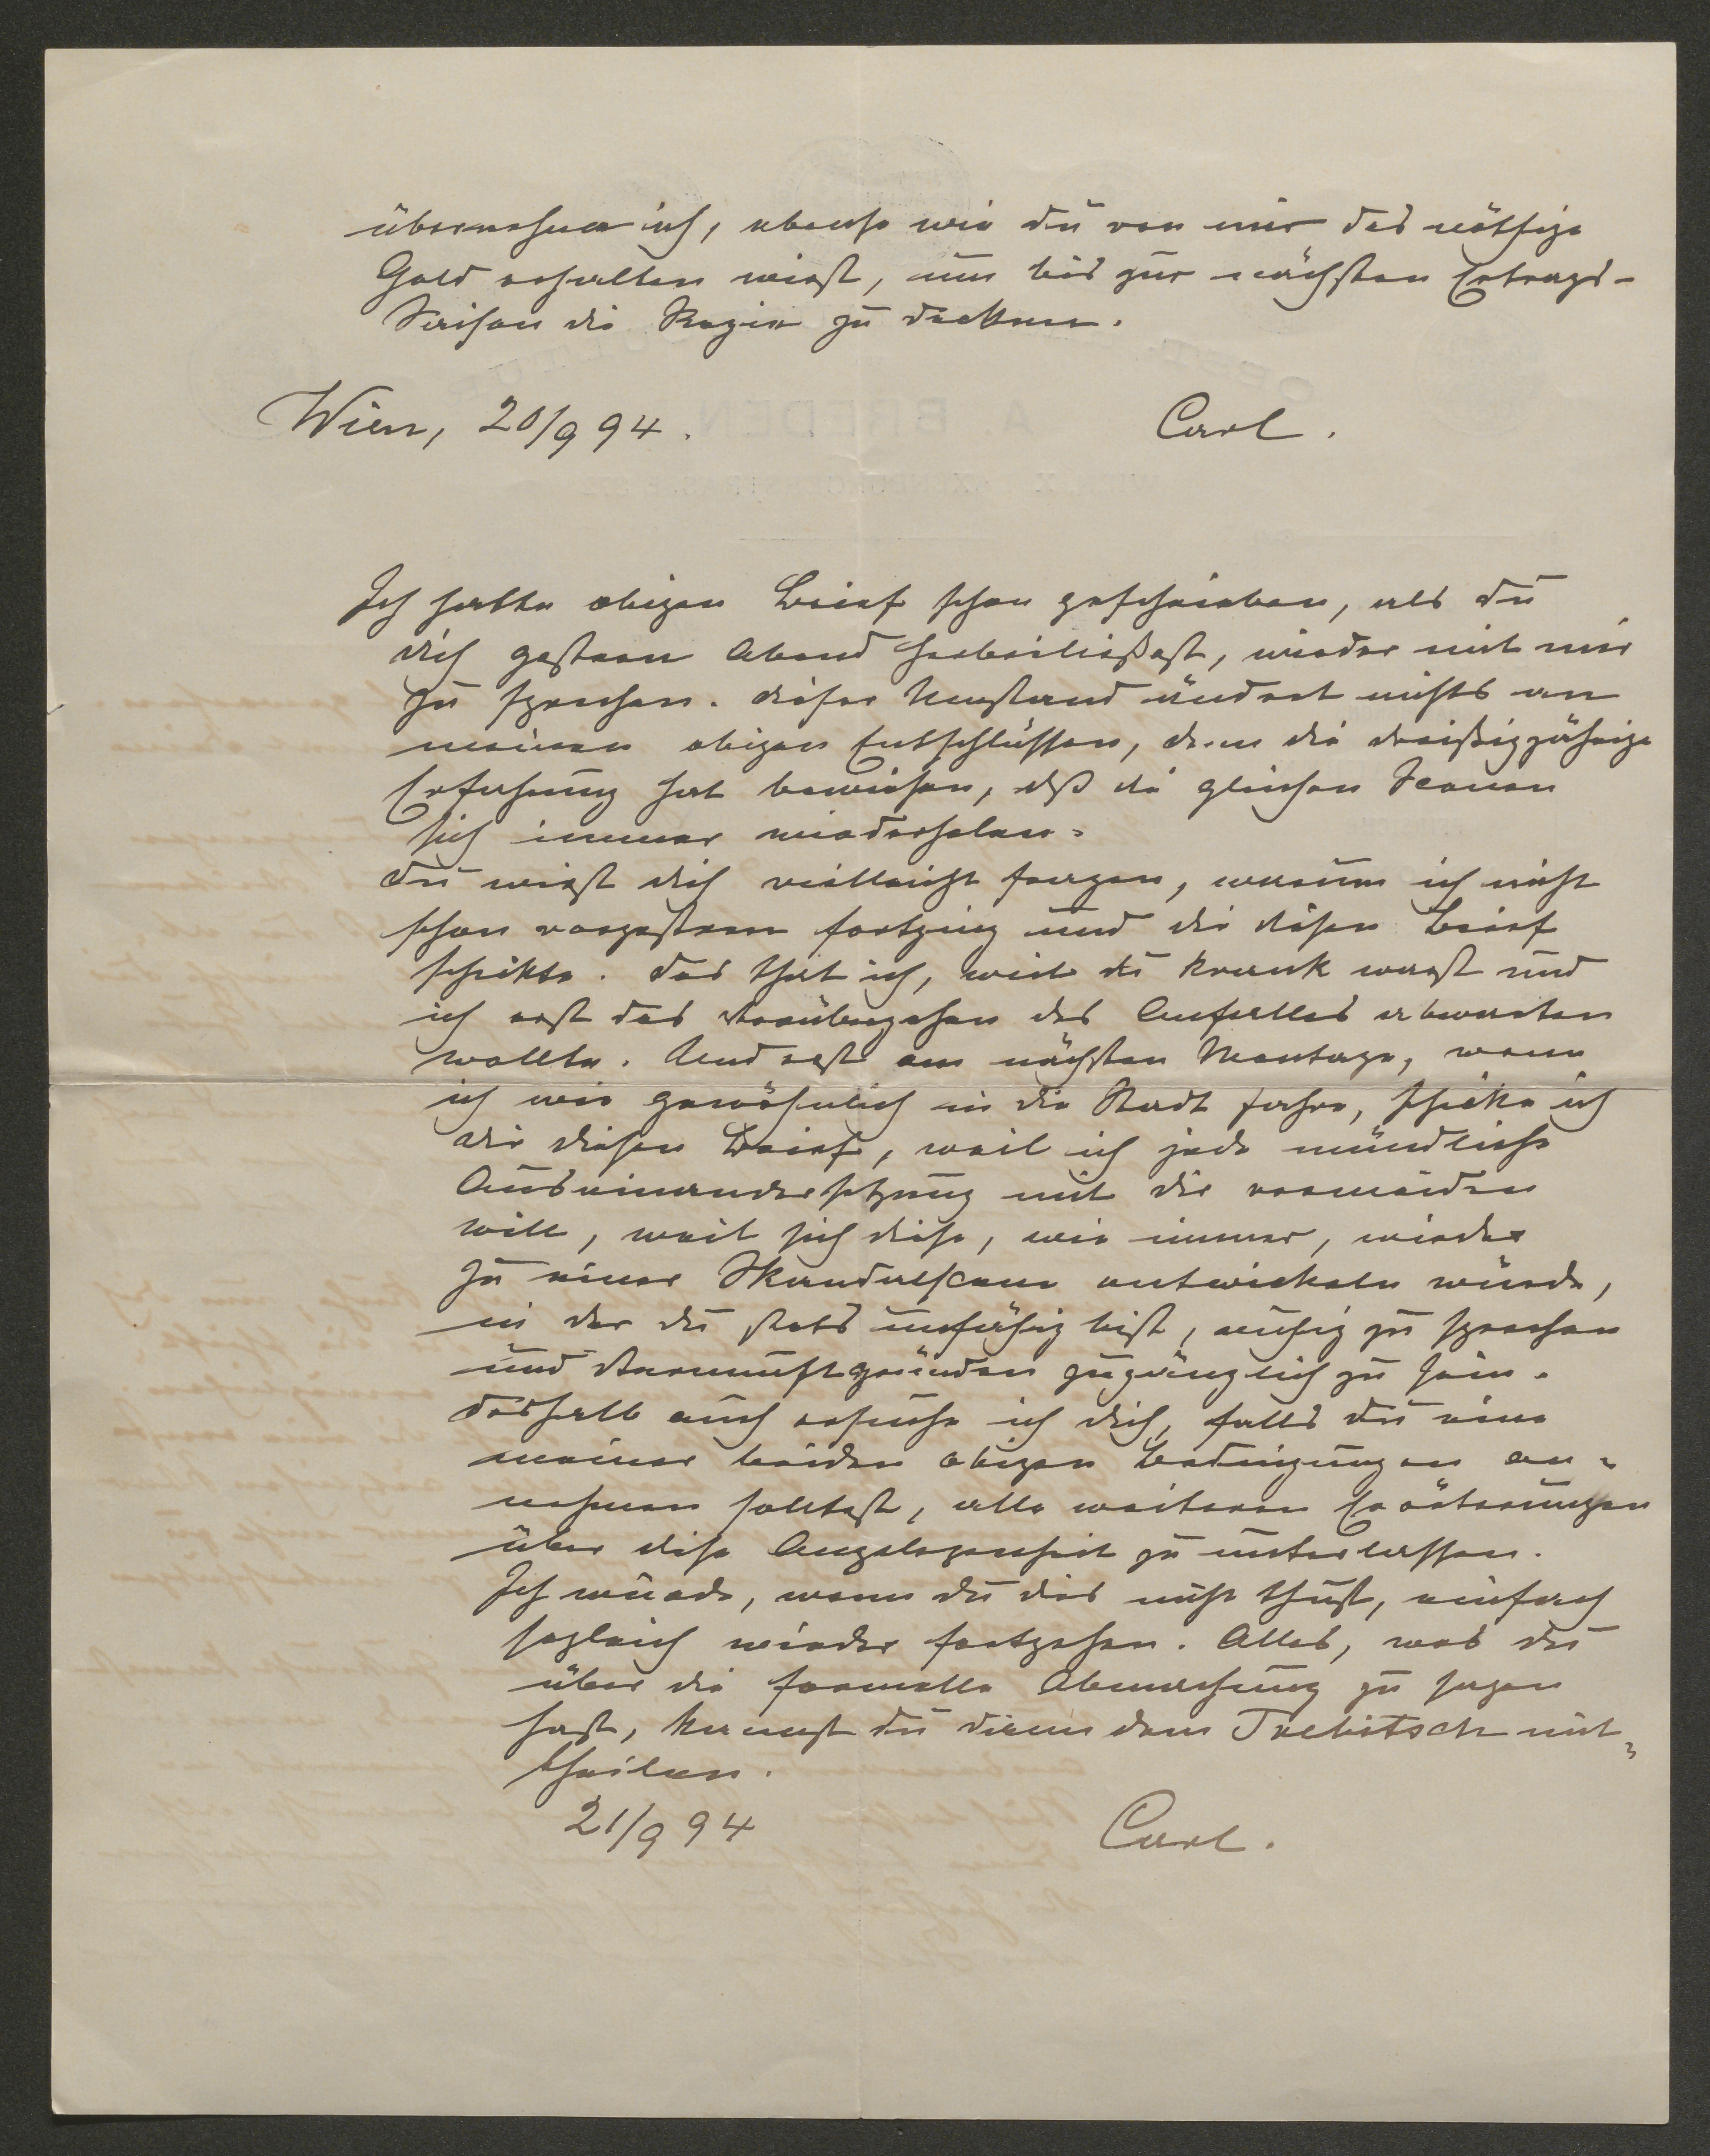 übernehme ich, ebenso wie du von mir das nöthige
Geld erhalten wirst, um bis zur nächsten Ertrags-
Saison die Regien zu decken.
Wien, 20/9 94.
Carl.
Ich hatte obigen Brief schon geschrieben, als du
dich gestern Abend herbeiließest, wieder mit mir
zu sprechen. Dieser Umstand ändert nichts an
meinen obigen Entschlüssen, denn die dreißigjährige
Erfahrung hat bewiesen, dß die gleichen Scenen
sich immer wiederholen.
Du wirst dich vielleicht fragen, warum ich nicht
schon vorgestern fortging und dir diesen Brief
schickte. Das that ich, weil du krank warst und
ich erst das Vorübergehen des Anfalles abwarten
wollte. Und erst am nächsten Montage, wenn
ich wie gewöhnlich in die Stadt fahre, schicke ich
dir diesen Brief, weil ich jede mündliche
Auseinandersetzung mit dir vermeiden
will, weil sich diese, wie immer, wieder
zu einer Skandalscene entwickeln würde,
in der du stets unfähig bist, ruhig zu sprechen
und Vernunftgründen zugänglich zu sein.
Deshalb auch ersuche ich dich, falls du eine
meiner beiden obigen Bedingungen an-
nehmen solltest, alle weiteren Erörterungen
über diese Angelegenheit zu unterlassen.
Ich würde, wenn du dies nicht thust, einfach
sogleich wieder fortgehen. Alles, was du
über die formelle Abmachung zu sagen
hast, kannst du dann dem Trebitsch mit-
theilen.
21/9 94
Carl.